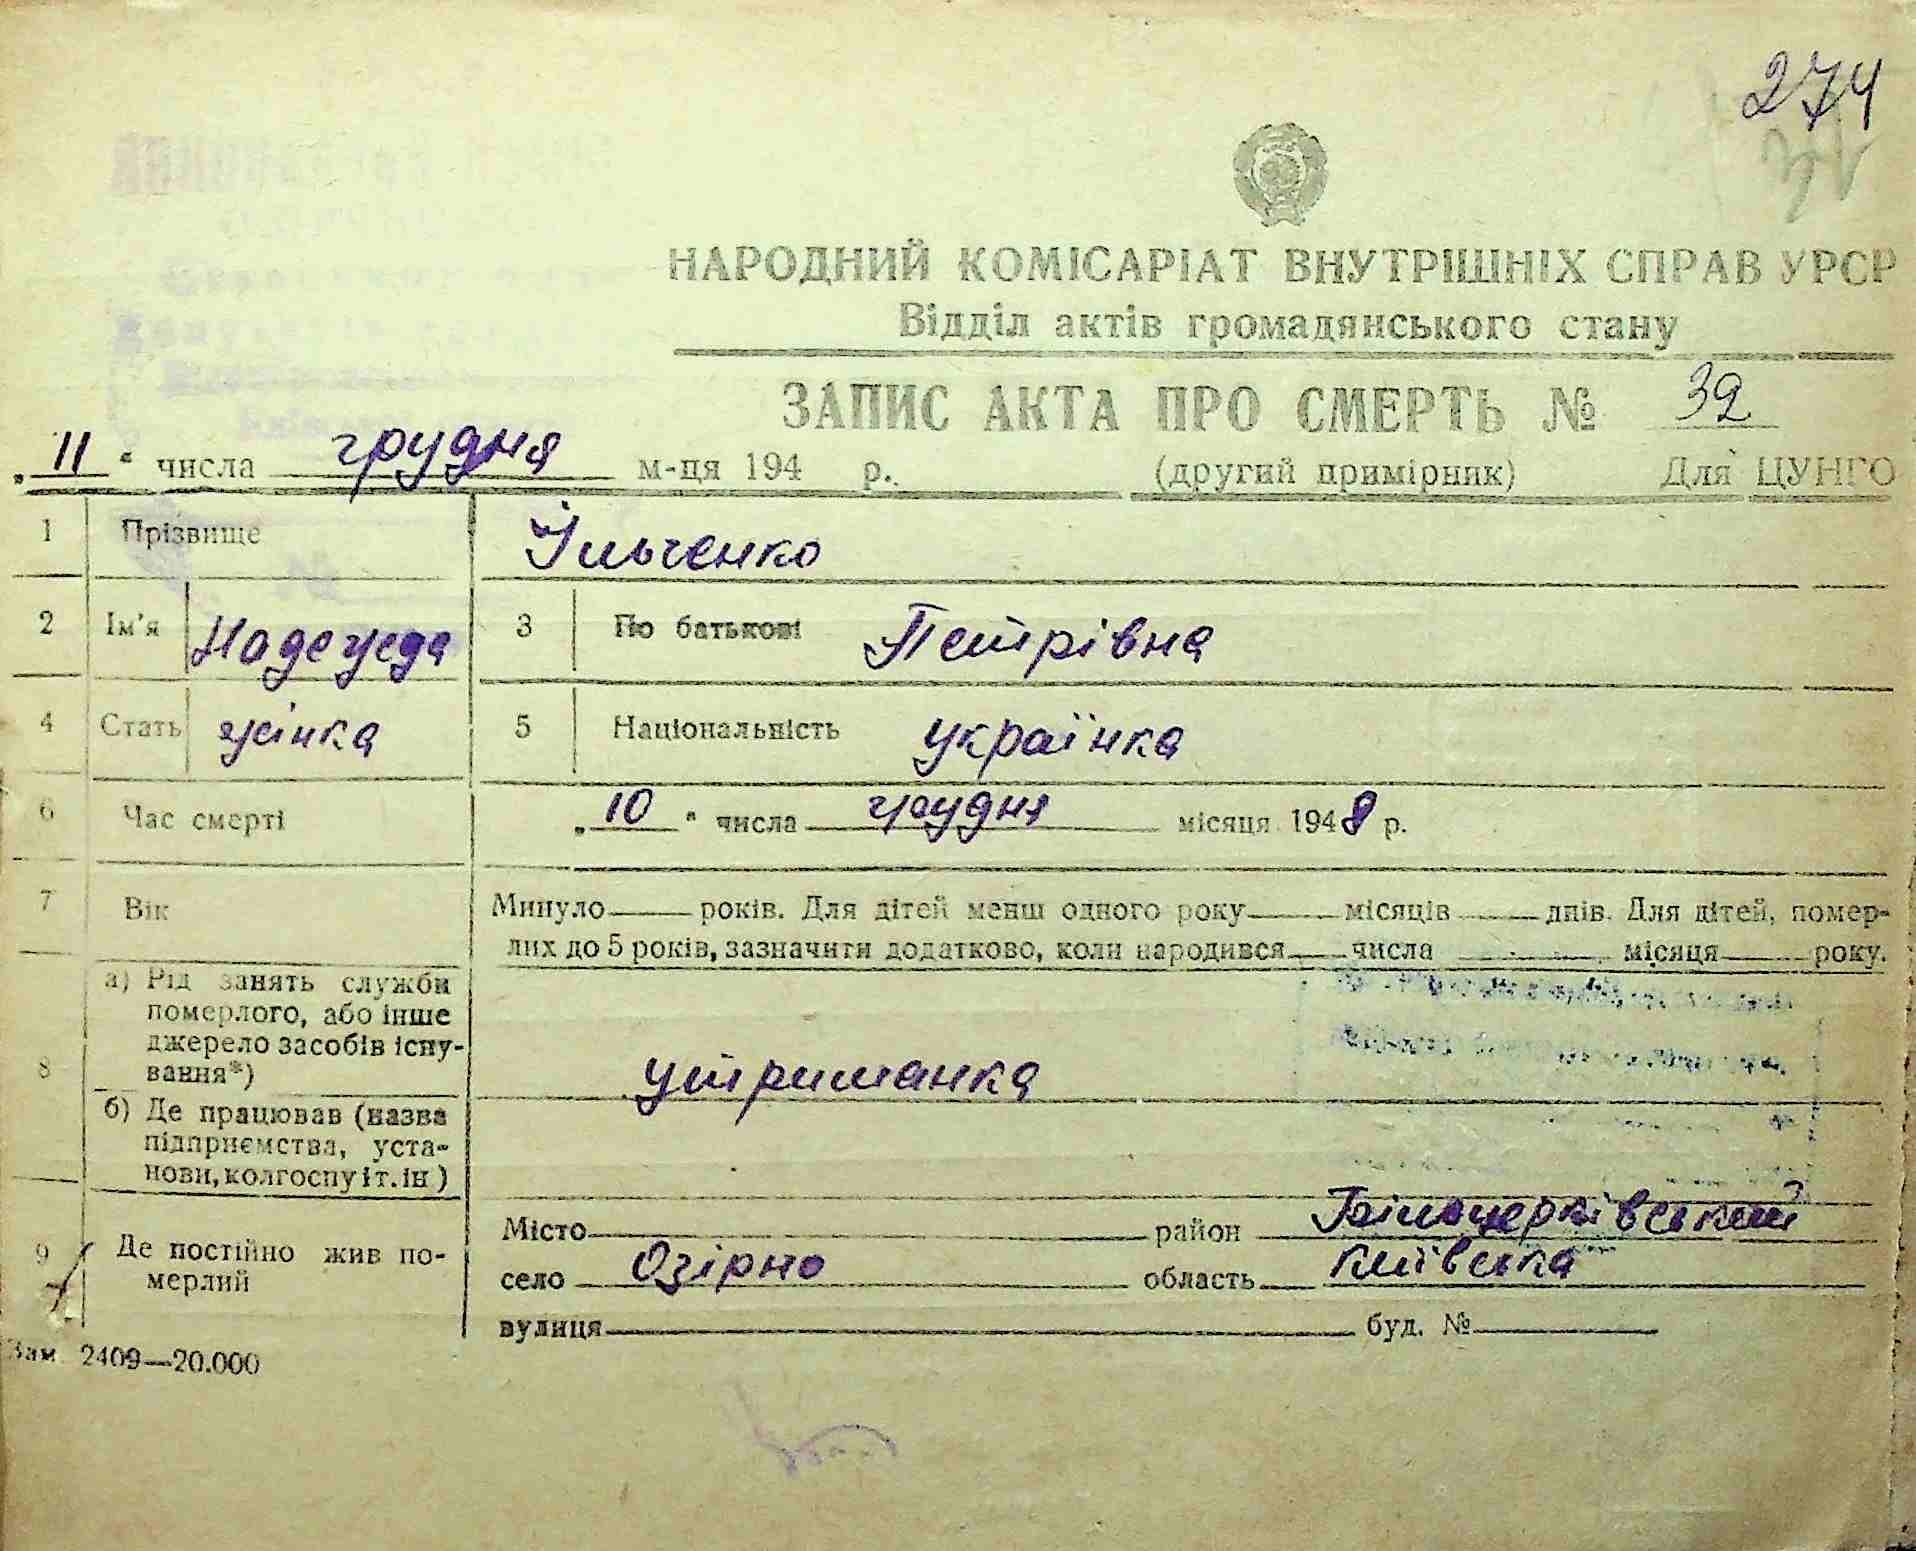 274
НАРОДНИЙ КОМІСАРІАТ ВНУТРІШНІХ СПРАВ УРСР
Відділ актів громадянського стану
ЗАПИС АКТА ПРО СМЕРТЬ № 32
„11“ числа грудня м-ця 194 р. (другий примірник) Для ЦУНГО
1 Прізвище Ільченко
2 Ім'я Надежда 3 По батькові Петрівна
4 Стать жінка 5 Національність українка
6 Час смерті „10“ числа грудня місяця 1948 р.
7 Вік Минуло — років. Для дітей менш одного року — місяців — днів. Для дітей, помер-
лих до 5 років, зазначити додатково, коли народився — числа місяця — року.
8 а) Рід занять служби
померлого, або інше
джерело засобів існу-
вання*) утриманка
б) Де працював (назва
підприємства, уста-
нови, колгоспу і т. ін)
9 Де постійно жив по-
мерлий
Місто район Білоцерківський
село Озірно область Київська
вулиця буд. №
Зам 2409—20.000